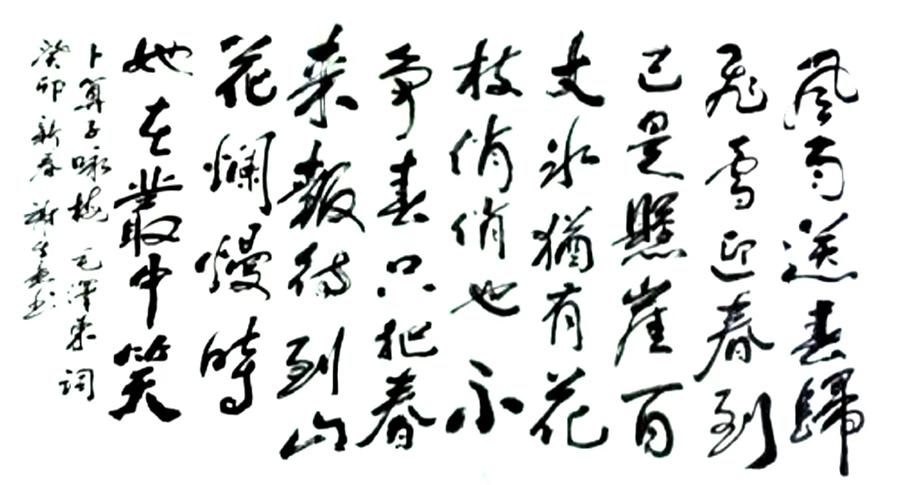 風雨送春歸
飛雪迎春到
已是懸崖百
丈冰猶有花
枝俏俏也不
争春只把春
来報待到山
花爛熳時
她在叢中笑
卜算子咏梅 毛澤東詞
癸卯新春